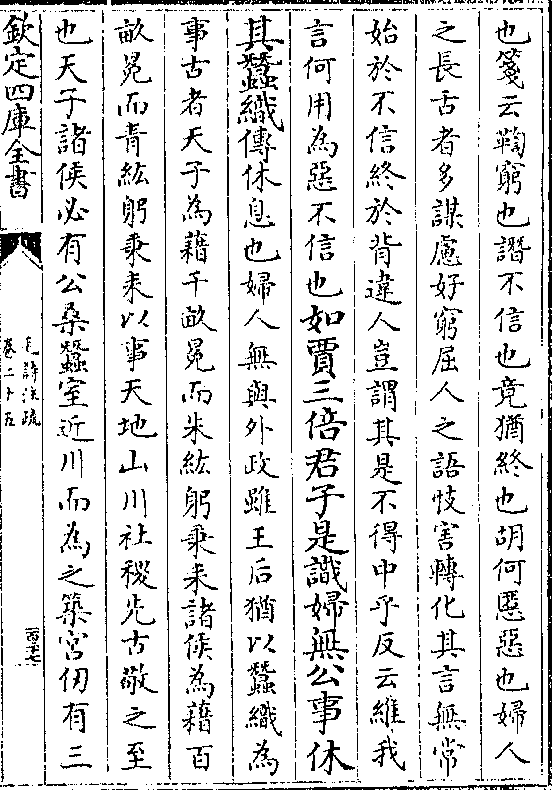 也箋云鞫窮也譖不信也竟猶終也胡何慝惡也婦人
之長舌者多謀慮好窮屈人之語忮害轉化其言無常
始於不信終於背違人豈謂其是不得中乎反云維我
言何用為惡不信也如賈三倍君子是識婦無公事休
其蠶織傳休息也婦人無與外政雖王后猶以蠶織為
事古者天子為藉千畝冕而朱紘躬秉耒諸侯為藉百
畝冕而青紘躬秉耒以事天地山川社稷先古敬之至
也天子諸侯必有公桑蠶室近川而為之築宮仞有三
欽定四庫全書
毛詩注疏
卷二十五